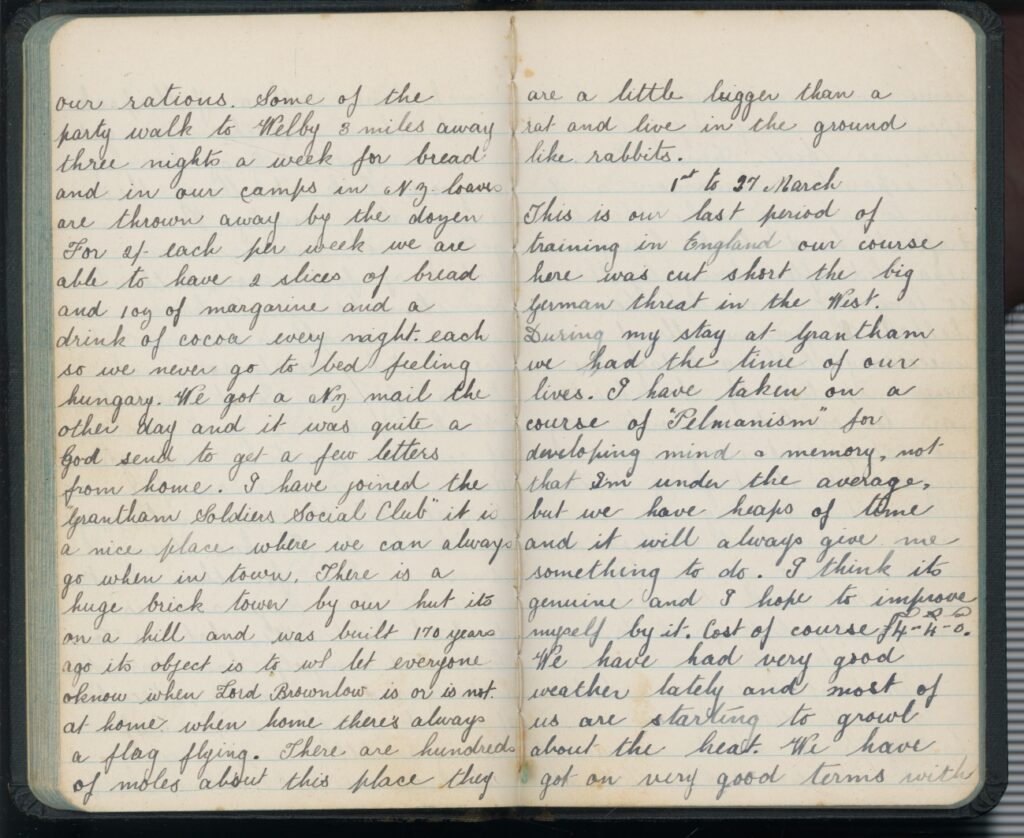 our rations. Some of the
party walk to Welby 3 miles away
three nights a week for bread
and in our camps in NZ loaves
are thrown away by the dozen
For 2/- each per week we are
able to have 2 slices of bread
and 1oz of margarine and a
drink of cocoa every night. each
so we never go to bed feeling
hungary. We got a NZ mail the
other day and it was quite a
God send to get a few letters
from home. I have joined the
"Grantham Soldiers Social Club" it is
a nice place where we can always
go when in town. There is a
huge brick tower by our hut its
on a hill and was built 170 years
ago its object is to let everyone
know when Lord Brownlow is or is not.
at home when home theres always
a flag flying. There are hundreds
of moles about this place they
are a little bigger than a
rat and live in the ground
like rabbits.
1st to 27 March
This is our last period of
training in England our course
here was cut short the big
German threat in the West.
During my stay at Grantham
we had the time of our
lives. I have taken on a
course of "Pelmanism" for
developing mind & memory, not
that Im under the average,
but we have heaps of time
and it will always give me
something to do. I think its
genuine and I hope to improve
myself by it. Cost of course £4-4-0.
We have had very good
weather lately and most of
us are starting to growl
about the heat. We have
got on very good terms with